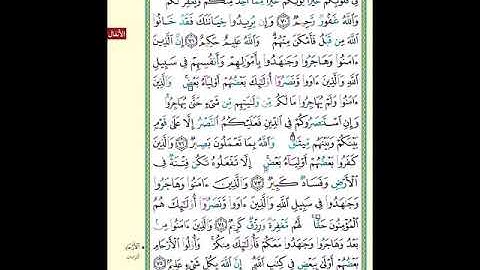 فِي قُلُوبِكُمْ خَيْرًا يُؤْتِكُمْ خَيْرًا مِّمَّآ أُخِذَ مِنكُمْ وَيَغْفِرْ لَكُمْ
وَاللَّهُ غَفُورٌ رَّحِيمٌ ﴿٧٠﴾ وَإِن يُرِيدُوا۟ خِيَانَتَكَ فَقَدْ خَانُوا۟
الأنفال
اللَّهَ مِن قَبْلُ فَأَمْكَنَ مِنْهُمْ وَاللَّهُ عَلِيمٌ حَكِيمٌ ﴿٧١﴾ إِنَّ الَّذِينَ
ءَامَنُوا۟ وَهَاجَرُوا۟ وَجَٰهَدُوا۟ بِأَمْوَٰلِهِمْ وَأَنفُسِهِمْ فِي سَبِيلِ
اللَّهِ وَالَّذِينَ ءَاوَوا۟ وَّنَصَرُوٓا۟ أُو۟لَٰٓئِكَ بَعْضُهُمْ أَوْلِيَآءُ بَعْضٍ وَالَّذِينَ
ءَامَنُوا۟ وَلَمْ يُهَاجِرُوا۟ مَا لَكُم مِّن وَلَٰيَتِهِم مِّن شَيْءٍ حَتَّىٰ يُهَاجِرُوا۟
وَإِنِ اسْتَنصَرُوكُمْ فِي الدِّينِ فَعَلَيْكُمُ النَّصْرُ إِلَّا عَلَىٰ قَوْمٍ
بَيْنَكُمْ وَبَيْنَهُم مِّيثَٰقٌ وَاللَّهُ بِمَا تَعْمَلُونَ بَصِيرٌ ﴿٧٢﴾ وَالَّذِينَ
كَفَرُوا۟ بَعْضُهُمْ أَوْلِيَآءُ بَعْضٍ إِلَّا تَفْعَلُوهُ تَكُن فِتْنَةٌ فِي
الْأَرْضِ وَفَسَادٌ كَبِيرٌ ﴿٧٣﴾ وَالَّذِينَ ءَامَنُوا۟ وَهَاجَرُوا۟
وَجَٰهَدُوا۟ فِي سَبِيلِ اللَّهِ وَالَّذِينَ ءَاوَوا۟ وَّنَصَرُوٓا۟ أُو۟لَٰٓئِكَ هُمُ
الْمُؤْمِنُونَ حَقًّا لَّهُم مَّغْفِرَةٌ وَرِزْقٌ كَرِيمٌ ﴿٧٤﴾ وَالَّذِينَ ءَامَنُوا۟ مِنۢ
بَعْدُ وَهَاجَرُوا۟ وَجَٰهَدُوا۟ مَعَكُمْ فَأُو۟لَٰٓئِكَ مِنكُمْ وَأُو۟لُوا۟ الْأَرْحَامِ
بَعْضُهُمْ أَوْلَىٰ بِبَعْضٍ فِي كِتَٰبِ اللَّهِ إِنَّ اللَّهَ بِكُلِّ شَيْءٍ عَلِيمٌ ﴿٧٥﴾